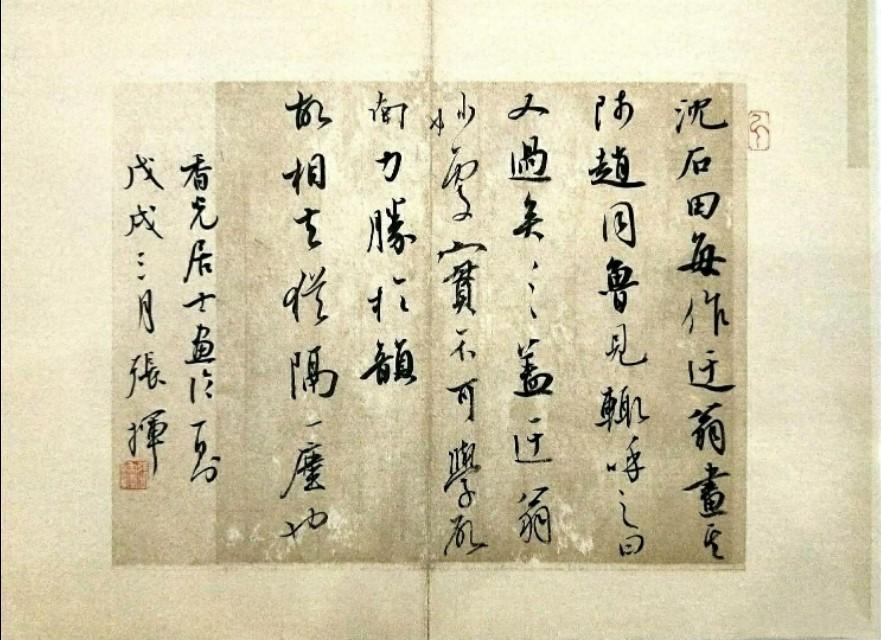 沈石田每作迂翁畫其
師趙同魯見輒呼之曰
又過矣〻〻蓋迂翁
妙處實不可學啟
南力勝於韻
故相去猶隔一塵也
香光居士畫論一則
戊戌三月張揮